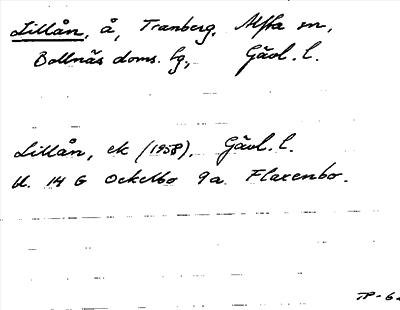 Lillån, å, Tranberg, Alfta sn,
Bollnäs doms. hg., Gävl. l.
Lillån, ek (1958), Gävl. l.
bl. 14 G Ockelbo 9a Flaxenbo.
TP-62